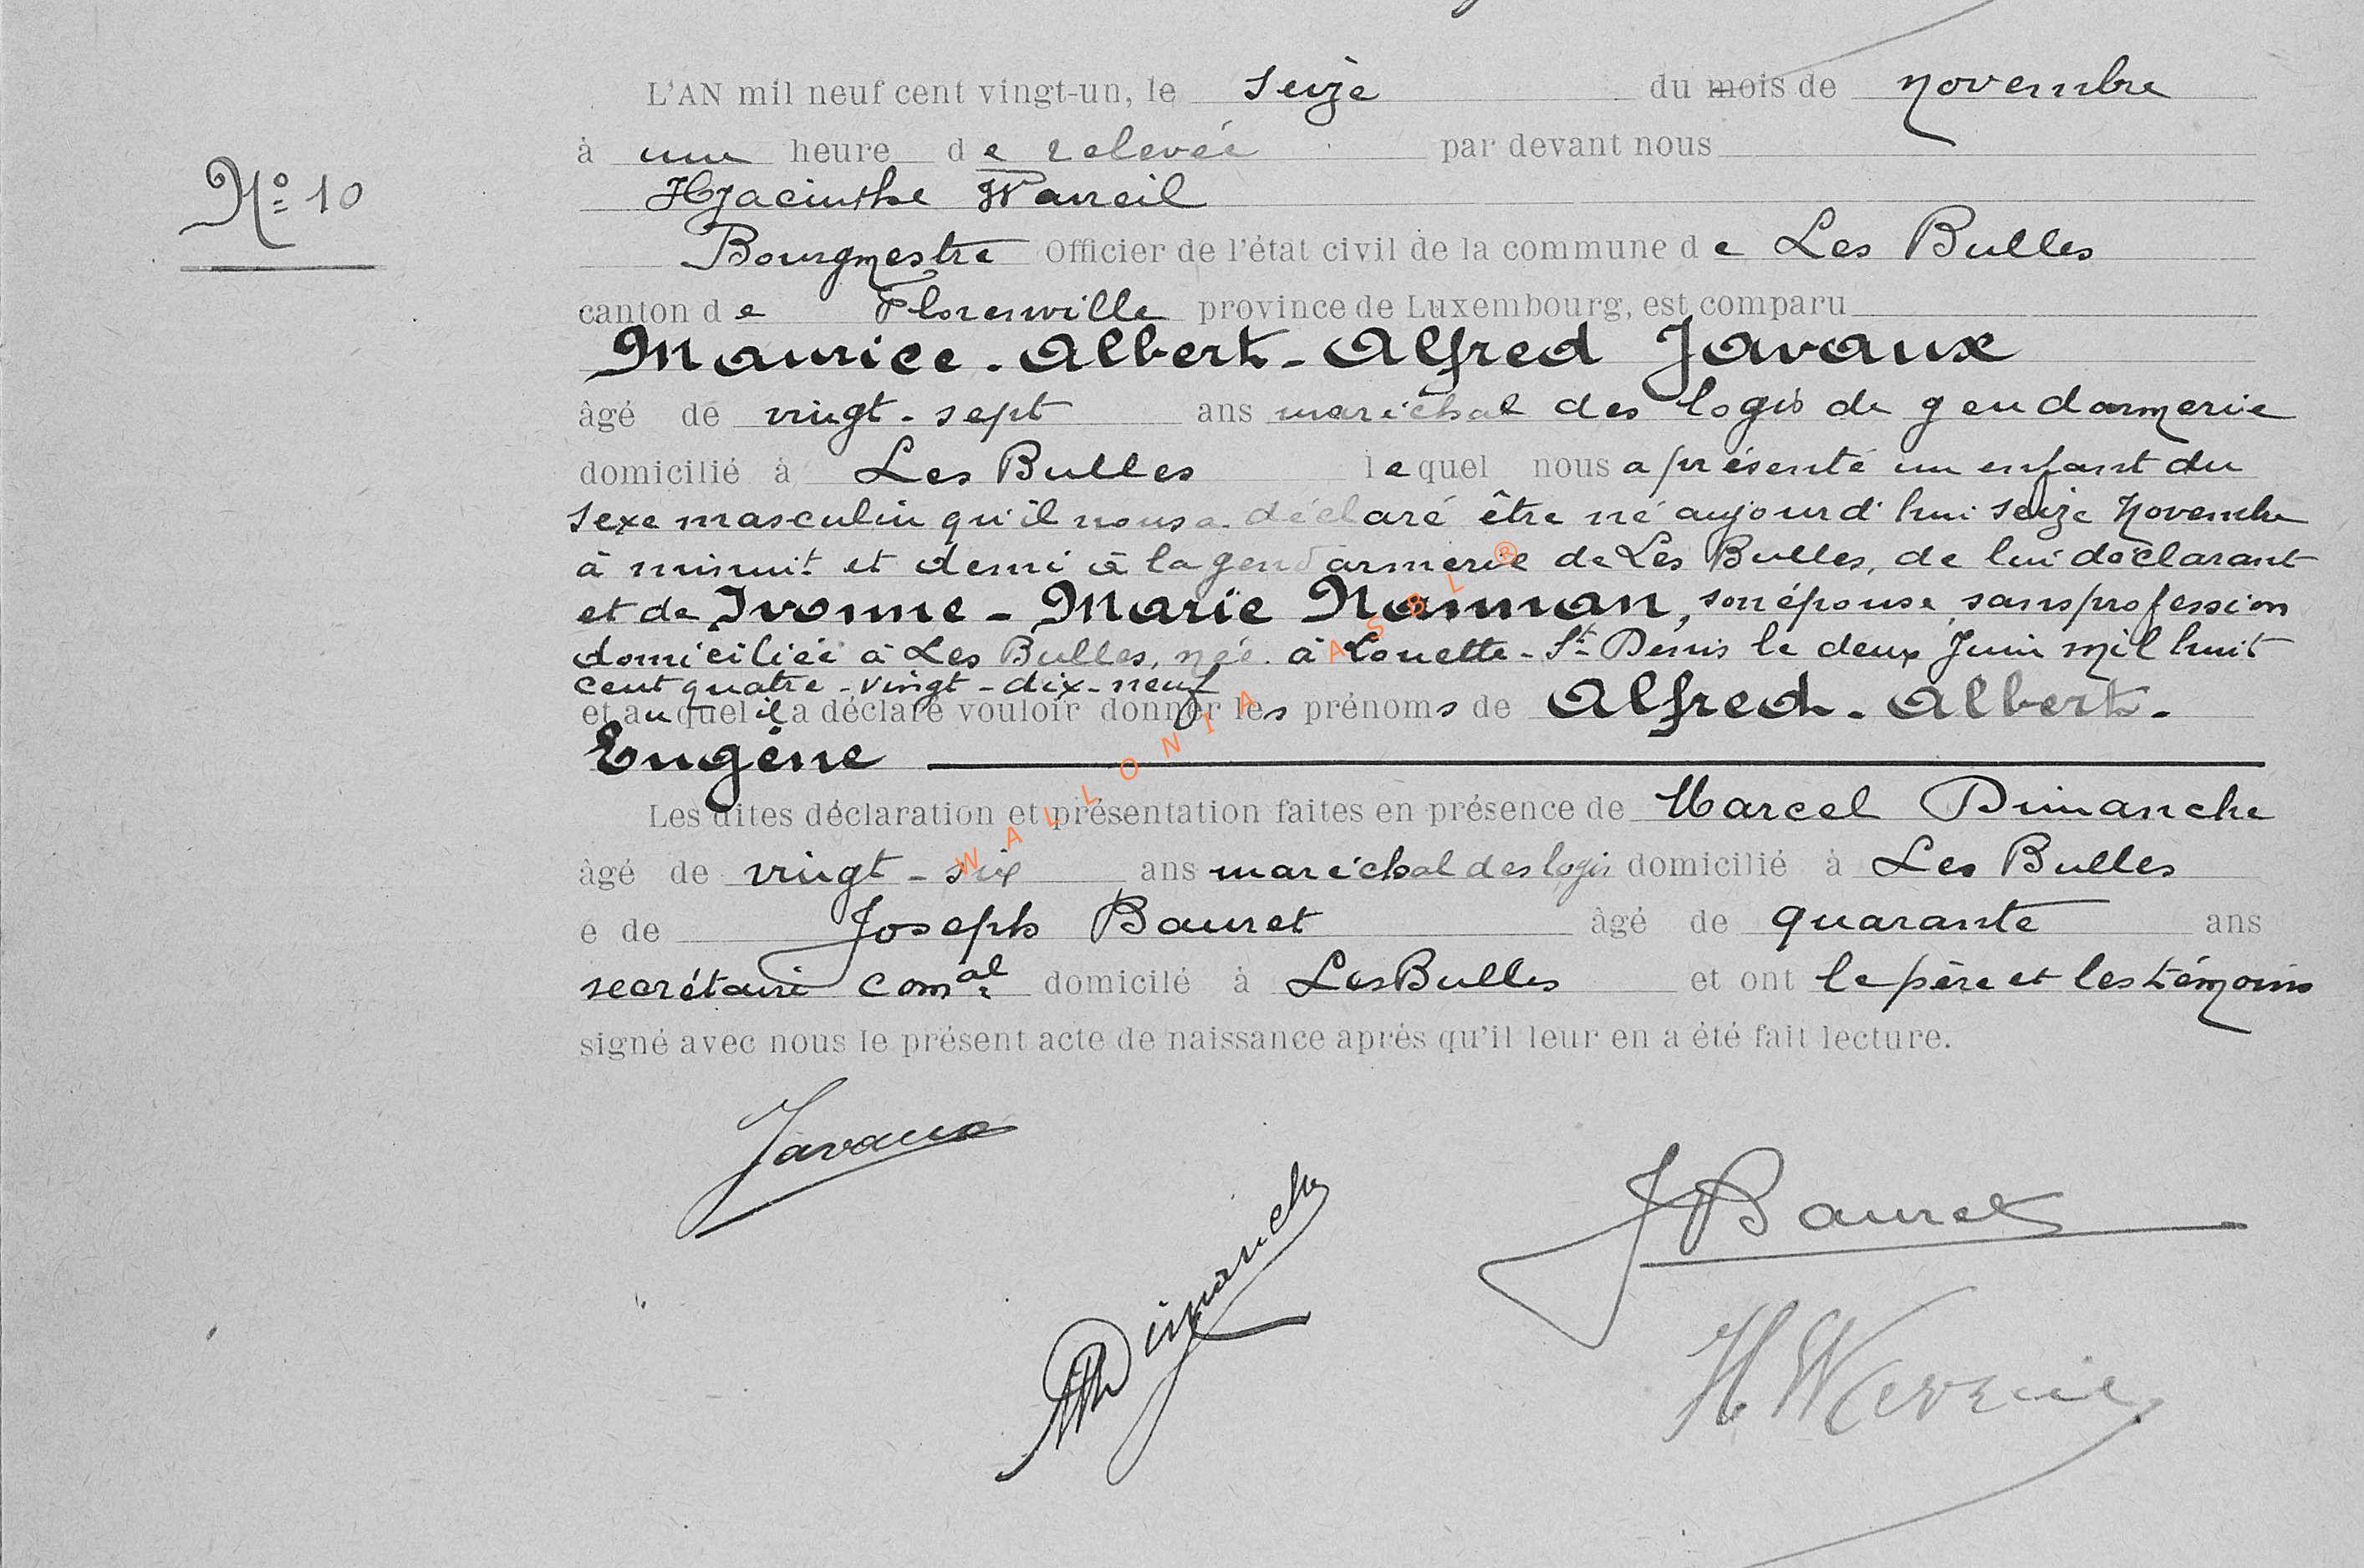 L'AN mil neuf cent vingt-un, le seize du mois de novembre
à une heure de relevée par devant nous
N° 10
Hyacinthe
Bourgmestre Officier de l'état civil de la commune de Les Bulles
canton de Florenville province de Luxembourg, est comparu
Maurice - Albert - Alfred Javaux
âgé de vingt-sept ans maréchal des logis de gendarmerie
domicilié à Les Bulles lequel nous a présenté un enfant du
sexe masculin qu'il nous a déclaré être né aujourd'hui seize Novembre
à minuit et demi à la gendarmerie de Les Bulles, de lui déclarant
et de Ivonne - Marie Nannan, son épouse, sans profession
domiciliée à Les Bulles, née à Louette-St Denis le deux Juin mil huit
cent quatre-vingt-dix-neuf
et auquel il a déclaré vouloir donner les prénoms de Alfred - Albert -
Eugène
Les dites déclaration et présentation faites en présence de Marcel Dimanche
âgé de vingt-six ans maréchal des logis domicilié à Les Bulles
e de Joseph Bauret âgé de quarante ans
secrétaire comal domicilé à Les Bulles et ont le père et les témoins
signé avec nous le présent acte de naissance après qu'il leur en a été fait lecture.
Javaux
MDimanche
J Bauret
WALLONIA ASBL ®